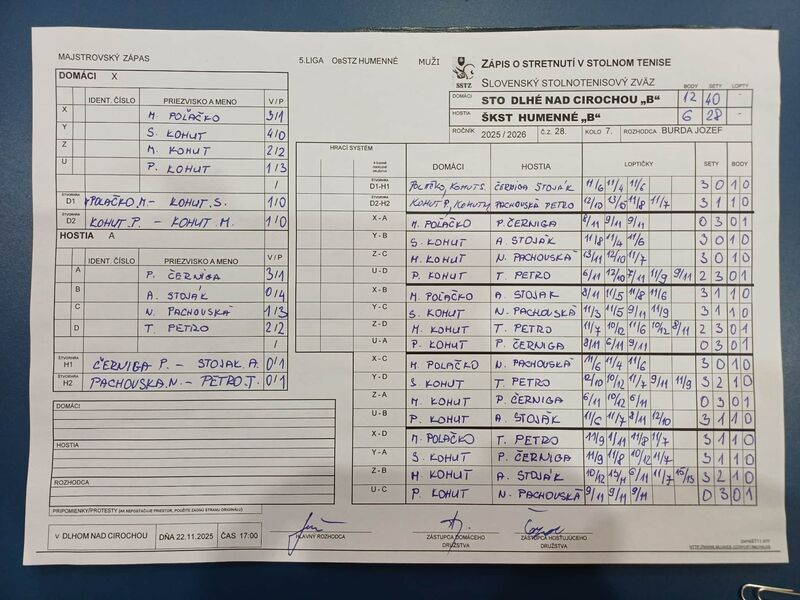 MAJSTROVSKÝ ZÁPAS
5.LIGA OBSTZ HUMENNÉ MUŽI
SSTZ
ZÁPIS O STRETNUTÍ V STOLNOM TENISE
SLOVENSKÝ STOLNOTENISOVÝ ZVÄZ
BODY SETY LOPTY
DOMÁCI STO DLHÉ NAD CIROCHOU „B“ 12 40 -
HOSTIA ŠKST HUMENNÉ „B“ 6 28 -
ROČNÍK 2025 / 2026 Č.Z. 28. KOLO 7. ROZHODCA BURDA JOZEF
DOMÁCI X
IDENT. ČÍSLO PRIEZVISKO A MENO V / P
X M. POĽAČKO 3/1
Y S. KOHUT 4/0
Z M. KOHUT 2/2
U P. KOHUT 1/3
/
ŠTVORHRA D1 POLAČKO M.- KOHUT S. 1/0
ŠTVORHRA D2 KOHUT P. - KOHUT M. 1/0
HOSTIA A
IDENT. ČÍSLO PRIEZVISKO A MENO V / P
A P. ČERNIGA 3/1
B A. STOJÁK 0/4
C N. PACHOVSKÁ 1/3
D T. PETRO 2/2
/
ŠTVORHRA H1 ČERNIGA P. - STOJAK A. 0/1
ŠTVORHRA H2 PACHOVSKA N. - PETRO T. 0/1
DOMÁCI
HOSTIA
ROZHODCA
PRIPOMIENKY/PROTESTY (AK NEPOSTAČUJE PRIESTOR, POUŽITE ZADNÚ STRANU ORIGINÁLU)
HRACÍ SYSTÉM
DOMÁCI HOSTIA LOPTIČKY SETY BODY
ŠTVORHRA D1-H1 POLAČKO, KOHUT S. ČERNIGA STOJÁK 11/6 11/4 11/6 3 0 1 0
ŠTVORHRA D2-H2 KOHUT P., KOHUT M. PACHOVSKÁ PETRO 12/10 13/15 11/8 11/7 3 1 1 0
X - A M. POĽAČKO P. ČERNIGA 8/11 9/11 9/11 0 3 0 1
Y - B S. KOHUT A. STOJÁK 11/8 11/4 11/6 3 0 1 0
Z - C M. KOHUT N. PACHOVSKÁ 13/11 12/10 11/7 3 0 1 0
U - D P. KOHUT T. PETRO 6/11 12/10 7/11 11/9 9/11 2 3 0 1
X - B M. POĽAČKO A. STOJAK 8/11 11/5 11/8 11/6 3 1 1 0
Y - C S. KOHUT N. PACHOVSKÁ 11/3 11/5 9/11 11/9 3 1 1 0
Z - D M. KOHUT T. PETRO 11/7 10/12 11/6 10/12 8/11 2 3 0 1
U - A P. KOHUT P. ČERNIGA 8/11 6/11 9/11 0 3 0 1
X - C M. POLAČKO N. PACHOVSKÁ 11/6 11/4 11/6 3 0 1 0
Y - D S. KOHUT T. PETRO 12/10 10/12 11/7 9/11 11/9 3 2 1 0
Z - A M. KOHUT P. ČERNIGA 6/11 10/12 6/11 0 3 0 1
U - B P. KOHUT A. STOJÁK 11/6 11/7 8/11 12/10 3 1 1 0
X - D M. POLAČKO T. PETRO 11/9 9/11 11/8 11/7 3 1 1 0
Y - A S. KOHUT P. ČERNIGA 11/9 11/8 10/12 11/7 3 1 1 0
Z - B M. KOHUT A. STOJÁK 10/12 13/11 6/11 11/7 15/13 3 2 1 0
U - C P. KOHUT N. PACHOVSKÁ 9/11 9/11 9/11 0 3 0 1
V DLHOM NAD CIROCHOU DŇA 22.11.2025 ČAS 17:00
HLAVNÝ ROZHODCA
ZÁSTUPCA DOMÁCEHO DRUŽSTVA
ZÁSTUPCA HOSŤUJÚCEHO DRUŽSTVA